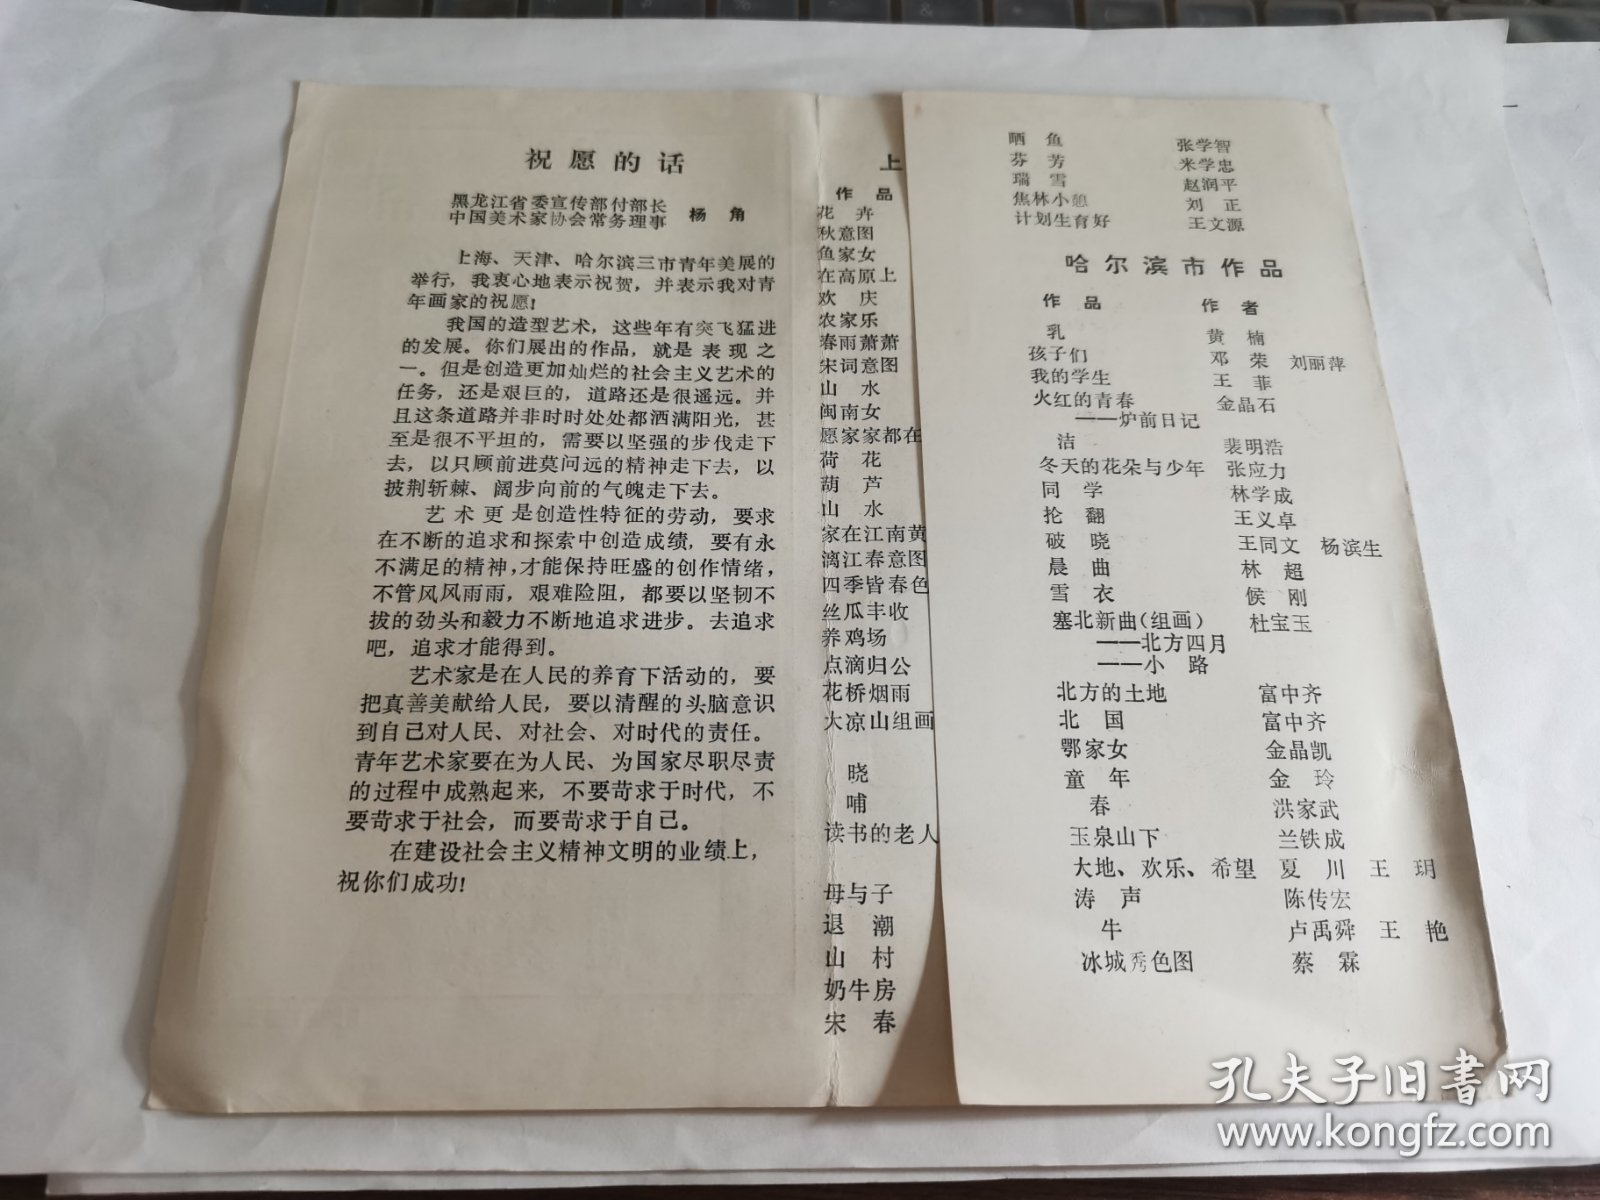 祝愿的话
黑龙江省委宣传部付部长
中国美术家协会常务理事 杨角
上海、天津、哈尔滨三市青年美展的
举行，我衷心地表示祝贺，并表示我对青
年画家的祝愿！
我国的造型艺术，这些年有突飞猛进
的发展。你们展出的作品，就是表现之
一。但是创造更加灿烂的社会主义艺术的
任务，还是艰巨的，道路还是很遥远。并
且这条道路并非时时处处都洒满阳光，甚
至是很不平坦的，需要以坚强的步伐走下
去，以只顾前进莫问远的精神走下去，以
披荆斩棘、阔步向前的气魄走下去。
艺术更是创造性特征的劳动，要求
在不断的追求和探索中创造成绩，要有永
不满足的精神，才能保持旺盛的创作情绪，
不管风风雨雨，艰难险阻，都要以坚韧不
拔的劲头和毅力不断地追求进步。去追求
吧，追求才能得到。
艺术家是在人民的养育下活动的，要
把真善美献给人民，要以清醒的头脑意识
到自己对人民、对社会、对时代的责任。
青年艺术家要在为人民、为国家尽职尽责
的过程中成熟起来，不要苛求于时代，不
要苛求于社会，而要苛求于自己。
在建设社会主义精神文明的业绩上，
祝你们成功！
上
作品
花卉
秋意图
鱼家女
在高原上
欢庆
农家乐
春雨萧萧
宋词意图
山水
闽南女
愿家家都在
荷花
葫芦
山水
家在江南黄
漓江春意图
四季皆春色
丝瓜丰收
养鸡场
点滴归公
花桥烟雨
大凉山组画
晓
哺
读书的老人
母与子
退潮
山村
奶牛房
宋春
晒鱼 张学智
芬芳 米学忠
瑞雪 赵润平
焦林小憩 刘正
计划生育好 王文源
哈尔滨市作品
作品 作者
乳 黄楠
孩子们 邓荣 刘丽萍
我的学生 王菲
火红的青春 金晶石
——炉前日记
洁 裴明浩
冬天的花朵与少年 张应力
同学 林学成
抢翻 王义卓
破晓 王同文 杨滨生
晨曲 林超
雪衣 侯刚
塞北新曲（组画） 杜宝玉
——北方四月
——小路
北方的土地 富中齐
北国 富中齐
鄂家女 金晶凯
童年 金玲
春 洪家武
玉泉山下 兰铁成
大地、欢乐、希望 夏川 王玥
涛声 陈传宏
牛 卢禹舜 王艳
冰城秀色图 蔡霖
孔夫子旧书网
www.kongfz.com